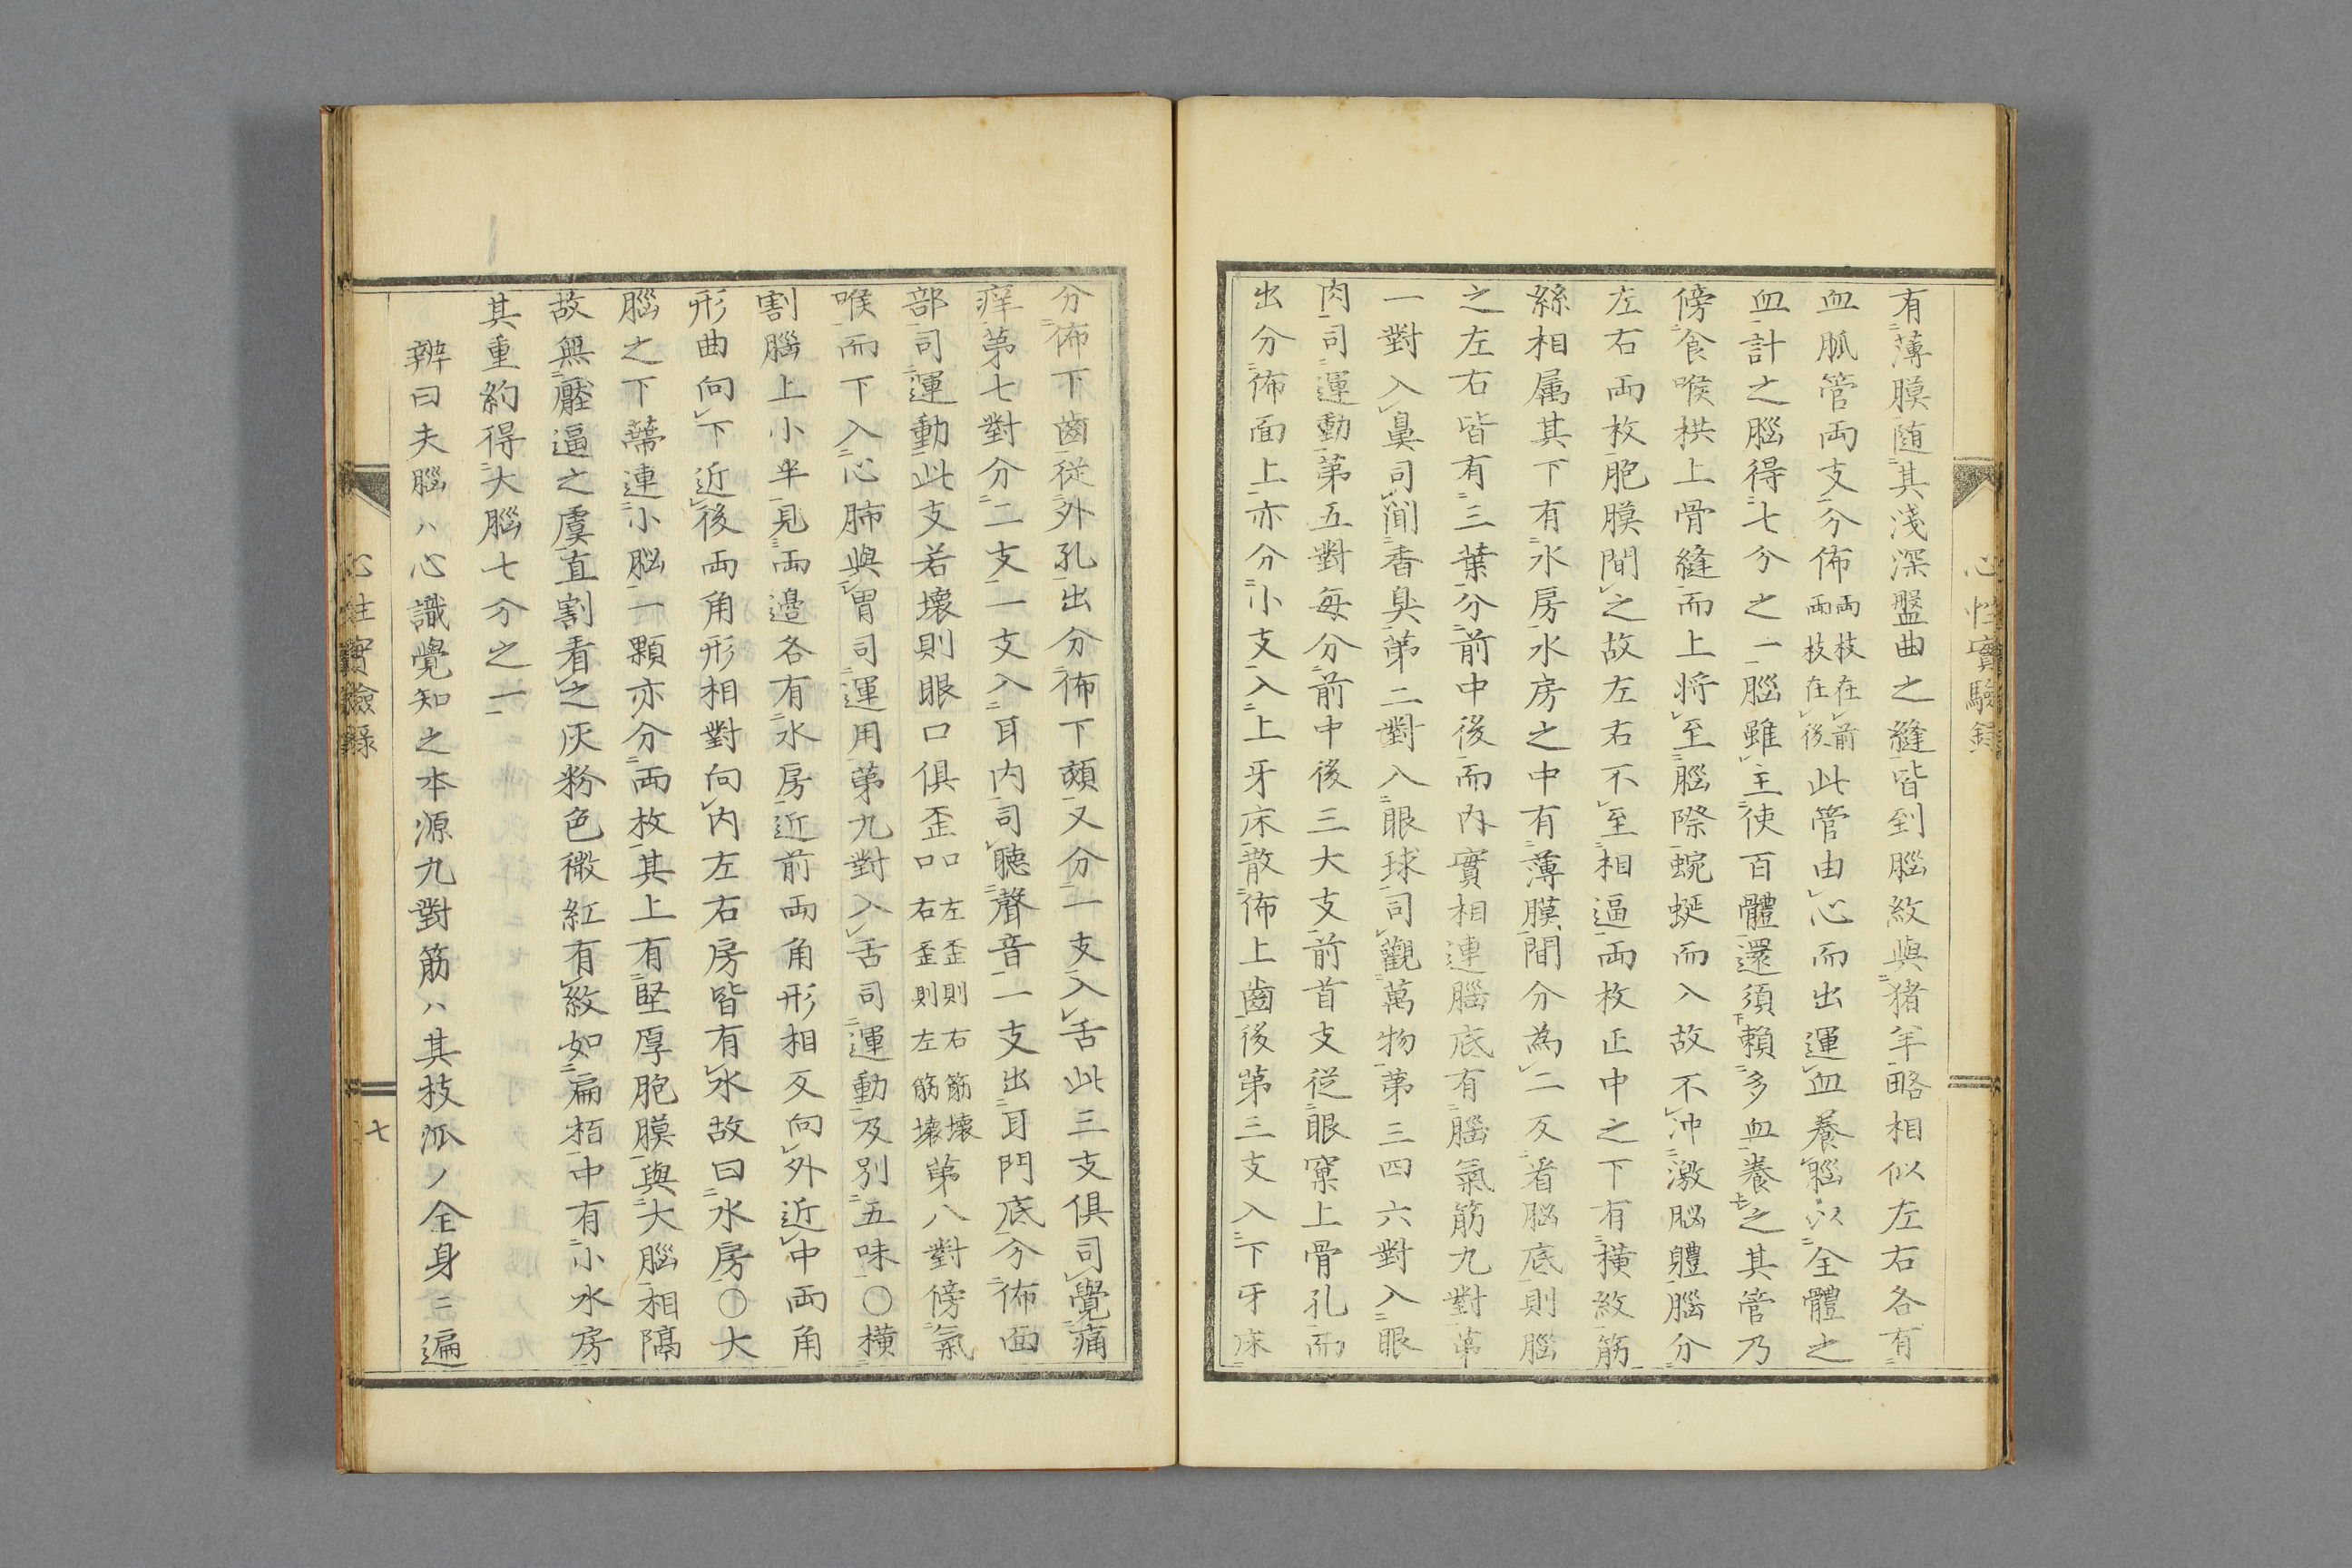 心性實驗録
有薄膜随其淺深盤曲之縫皆到腦紋與猪羊略相似左右各有
血脈管両支分佈両枝在前両枝在後此管由心而出運血養腦以全體之
血計之腦得七分之一腦雖主使百體還須賴多血養之其管乃
傍食喉拱上骨縫而上将至腦際蜿蜒而入故不冲激腦體腦分
左右両枚胞膜間之故左右不至相逼両枚正中之下有横紋筋
絲相属其下有水房水房之中有薄膜間分為二反看腦底則腦
之左右皆有三葉分前中後而内實相連腦底有腦氣筋九對第
一對入鼻司聞香臭第二對入眼球司觀萬物第三四六對入眼
肉司運動第五對每分前中後三大支前首支從眼窠上骨孔而
出分佈面上亦分小支入上牙床散佈上齒後第三支入下牙床
分佈下齒從外孔出分佈下頦又分一支入舌此三支俱司覺痛
痒第七對分二支一支入耳内司聽聲音一支出耳門底分佈面
部司運動此支若壊則眼口俱歪口左歪則右筋壊口右歪則左筋壊第八對傍氣
喉而下入心肺與胃司運用第九對入舌司運動及別五味○横
割腦上小半見両邉各有水房近前両角形相反向外近中両角
形曲向下近後両角形相對向内左右房皆有水故曰水房○大
腦之下蒂連小脳一顆亦分両枚其上有堅厚胞膜與大腦相隔
故無壓逼之虞直割看之灰粉色微紅有紋如扁栢中有小水房
其重約得大腦七分之一
辨曰夫腦ハ心識覺知之本源九對筋ハ其枝派ノ全身ニ遍
心性實驗録
七